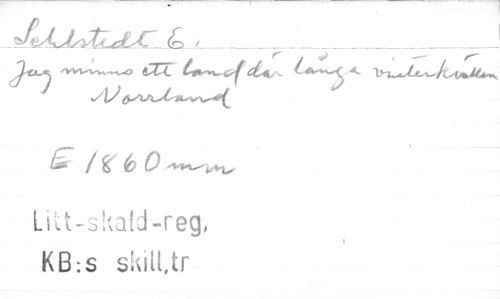 Sehlstedt E.
Jag minns ett land där långa vinterkvällen
Norrland
E 1860 mm
Litt-skald-reg.
KB:s skill,tr